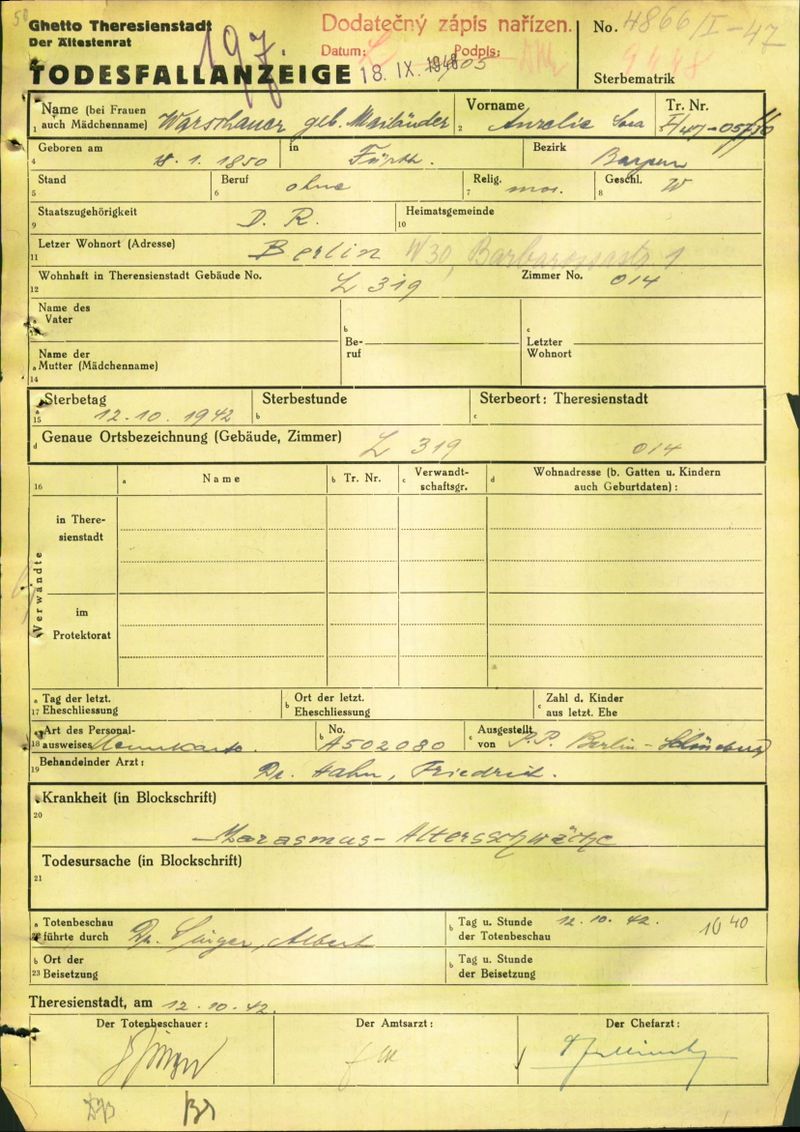 Ghetto Theresienstadt
Der Ältestenrat
TODESFALLANZEIGE
197.
Dodatečný zápis nařízen.
Datum: Podpis:
18. IX. 1948
No. 4866/I-47
Sterbematrik
Name (bei Frauen auch Mädchenname) Warschauer geb. Mailänder
1
Vorname Aurelie Sara
2
Tr. Nr.
Geboren am 1. 1850
4
in Fürth.
Bezirk Bayern
Stand
5
Beruf ohne
6
Relig. mos.
7
Geschl. W
8
Staatszugehörigkeit D. R.
9
Heimatsgemeinde
10
Letzer Wohnort (Adresse) Berlin W30, Barbarossastr 1
11
Wohnhaft in Therensienstadt Gebäude No. L 319 Zimmer No. 014
12
Name des Vater
a
b Beruf
c Letzter Wohnort
Name der Mutter (Mädchenname)
14
Sterbetag 12.10.1942
15
Sterbestunde
b
Sterbeort: Theresienstadt
c
d Genaue Ortsbezeichnung (Gebäude, Zimmer) L 319 014
16
a Name
b Tr. Nr.
c Verwandtschaftsgr.
d Wohnadresse (b. Gatten u. Kindern auch Geburtdaten):
Verwandte
in Theresienstadt
im Protektorat
a Tag der letzt.
17 Eheschliessung
b Ort der letzt. Eheschliessung
c Zahl d. Kinder aus letzt. Ehe
Art des Personal-
18 ausweises Kennkarte.
b No. A502080
c Ausgestellt von P.P. Berlin-Schöneberg
Behandelnder Arzt: Dr. Hahn, Friedrich.
19
Krankheit (in Blockschrift)
20
Marasmus-Altersschwäche
Todesursache (in Blockschrift)
21
a Totenbeschau
führte durch Dr. Albert
b Tag u. Stunde der Totenbeschau 12.10.42. 16 40
b Ort der
23 Beisetzung
b Tag u. Stunde der Beisetzung
Theresienstadt, am 12.10.42.
Der Totenbeschauer:
Der Amtsarzt:
Der Chefarzt: